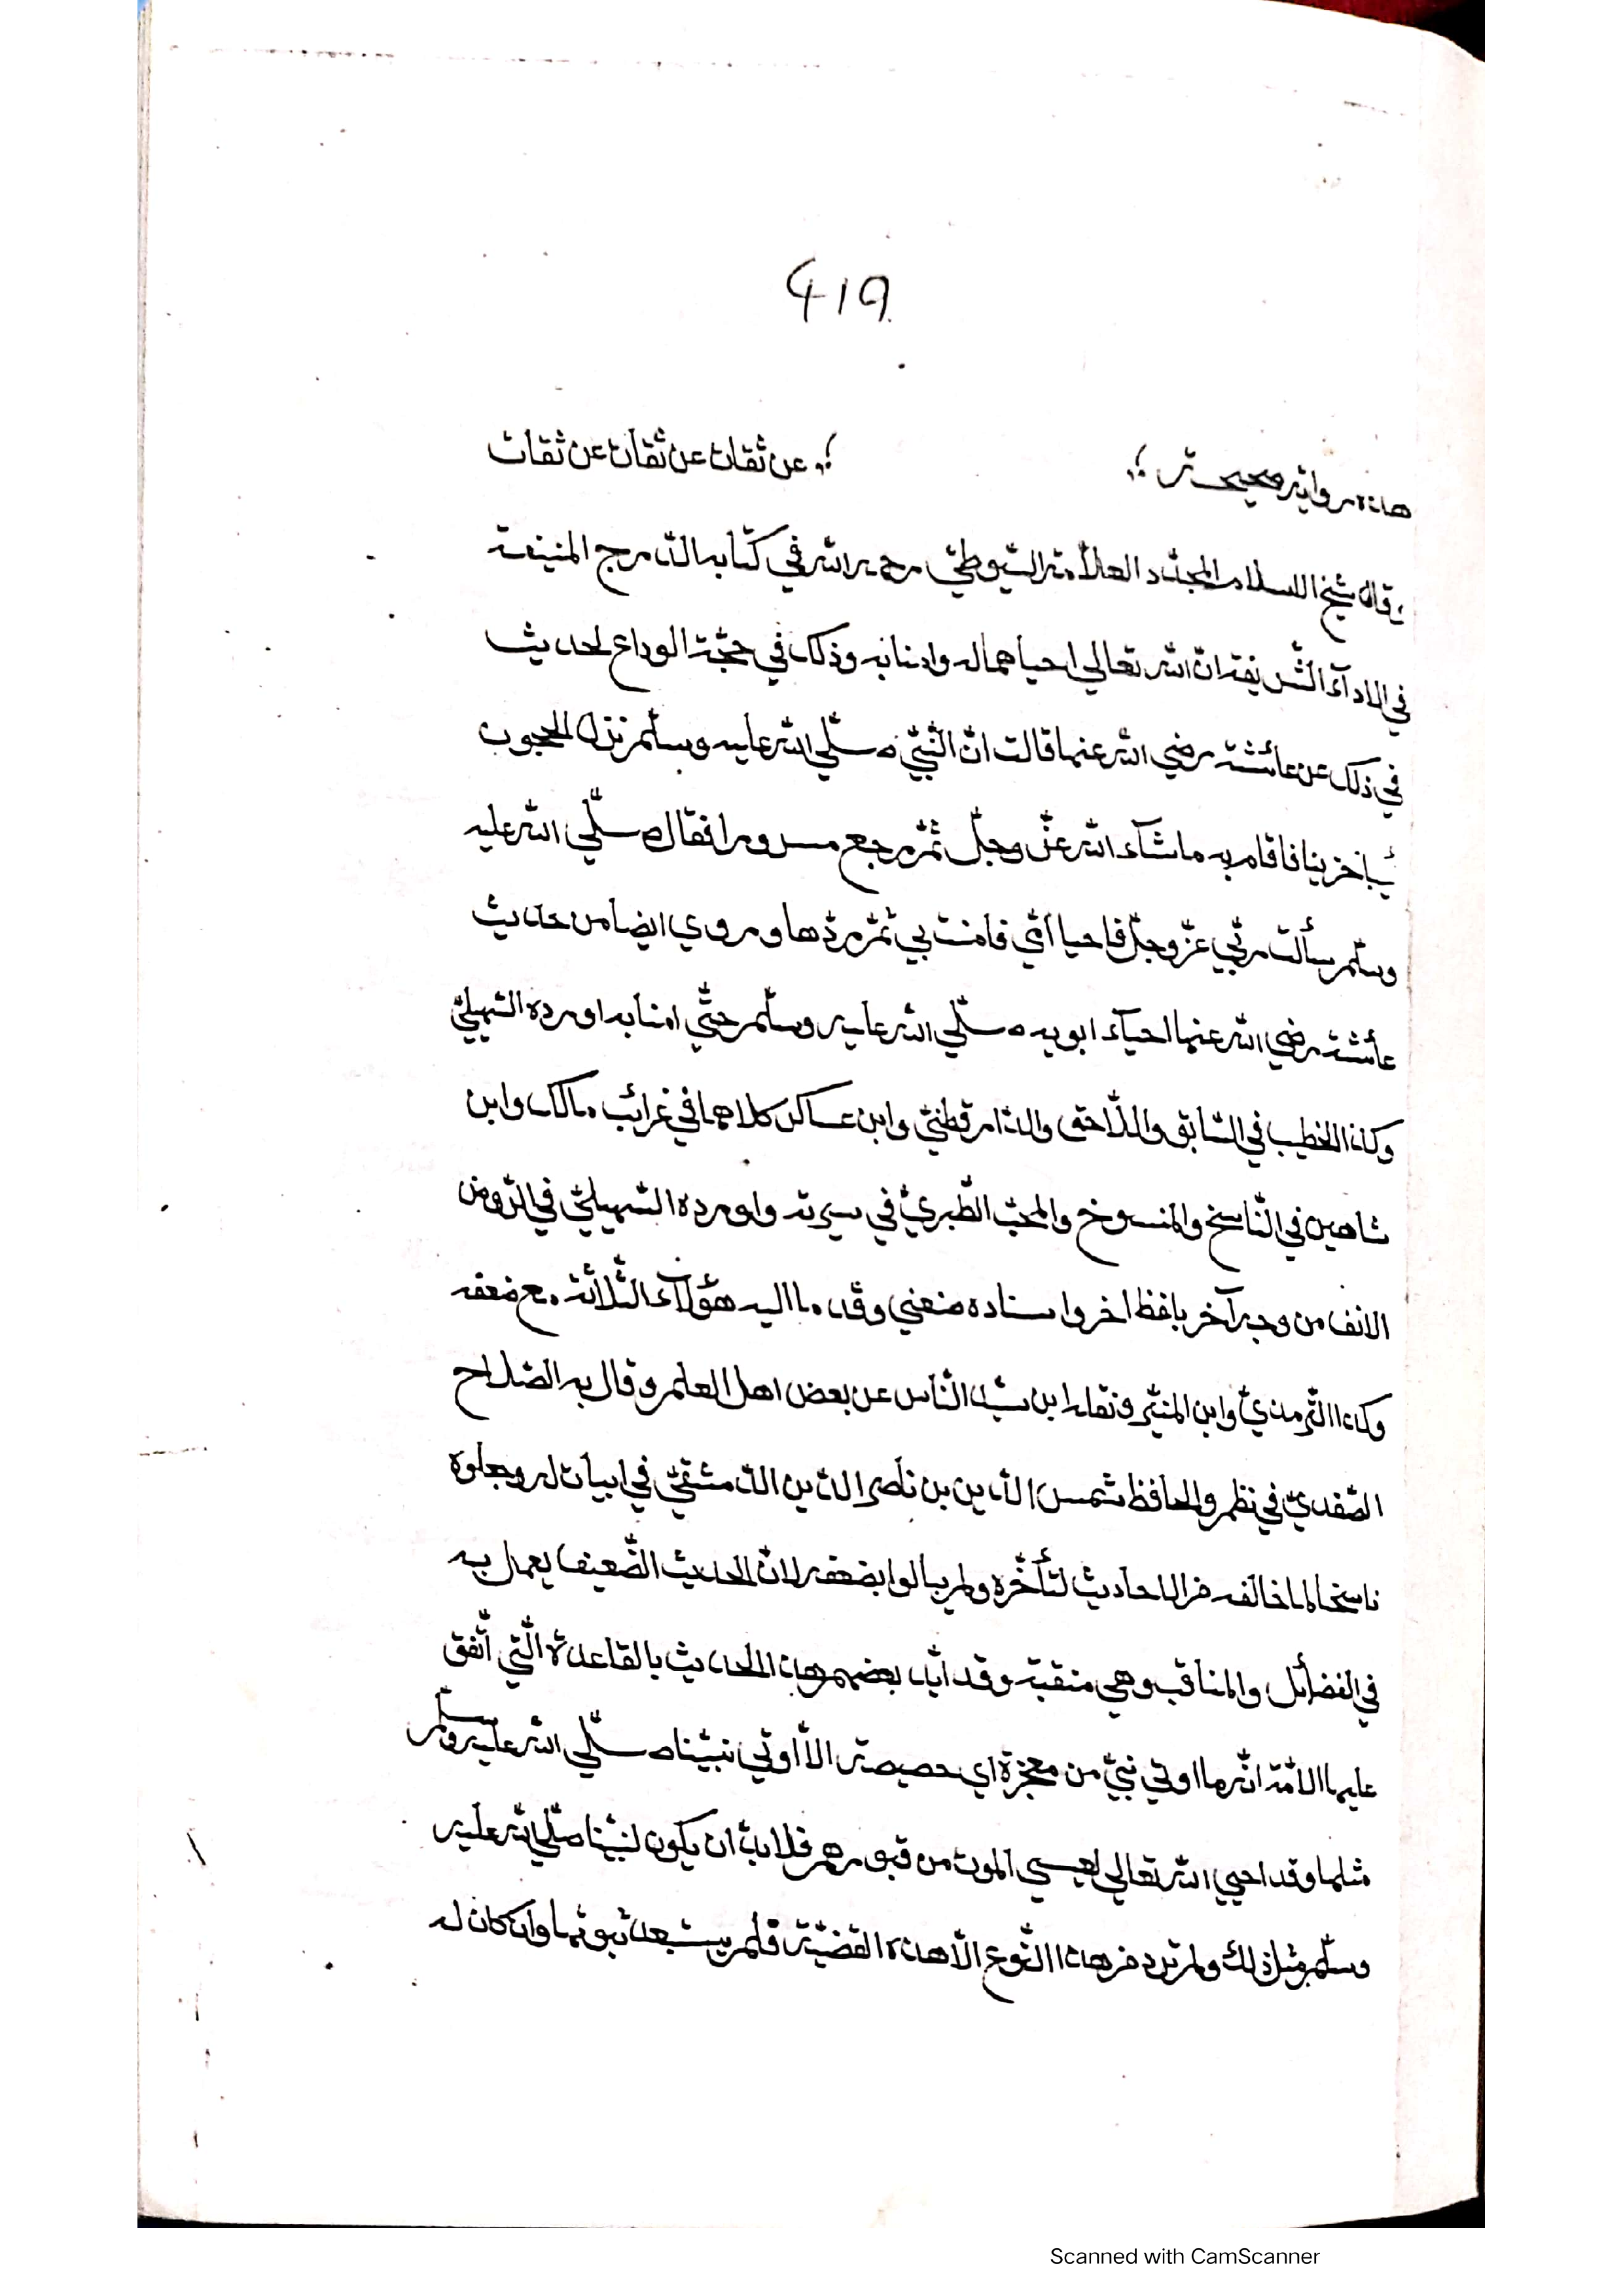 419
هذه رواية صحيحة ؛ ؛ عن ثقات عن ثقات عن ثقات
قال شيخ الاسلام المجدّد العلاّمة السّيوطيّ رحمه الله في كتابه الدّرج المنيفة
في الاٰدآء الشّريفة انّ الله تعالي احياهما له واٰمنا به وذلك في حجّة الوداع لحديث
في ذلك عن عائشة رضي الله عنها قالت انّ النّبيّ صلّي الله عليه وسلّم نزل الحجون
حزينا فاقام به ماشآء الله عزّ وجلّ ثمّ رجع مسرورا فقال صلّي الله عليه
وسلّم سألت ربّي عزّ وجلّ فاحيا امّي فامنت بي ثمّ ردّها وروي ايضا من حديث
عائشة رضي الله عنها احيآء ابويه صلّي الله عليه وسلّم حتّي امنا به اورده السّهيليّ
وكذا الخطيب في السّابق واللاّحق والدّارقطنيّ وابن عساكر كلاهما في غرائب مالك وابن
شاهين في النّاسخ والمنسوخ والمحبّ الطّبريّ في سيرته واورده السّهيليّ في الرّوض
الانف من وجه آخر بلفظ اخر واسناده ضعني وقد مااليه هؤلآء الثّلاثة مع ضعفه
وكذا التّرمذيّ وابن المنيّر ونقله ابن سيّد النّاس عن بعض اهل العلم وقال به الصّلاح
الصّفديّ في نظم والحافظ شمس الدّين بن ناصر الدّين الدّمشقيّ في ابيات له وجعلوه
ناسخا لما خالفه من الاحاديث لتأخّره ولم يبالوا بضعفه لانّ الحديث الضّعيف يعمل به
في الفضائل والمناقب وهي منقبة وقد ايّد بعضهم هذا الحديث بالقاعدة الّتي اتّفق
عليها الامّة انّه ما اوتي نبيّ من معجزة اي حصيصة الاّ اوتي نبيّنا صلّي الله عليه وسلّم
مثلها وقد احيي الله تعالي لعيسي الموت من قبورهم فلا بدّ ان يكون لنبيّنا صلّي الله عليه
وسلّم مثل ذلك ولم ترد من هذا النّوع الاّ هذه القضيّة فلم يستبعد ثبوتها وان كان له
Scanned with CamScanner